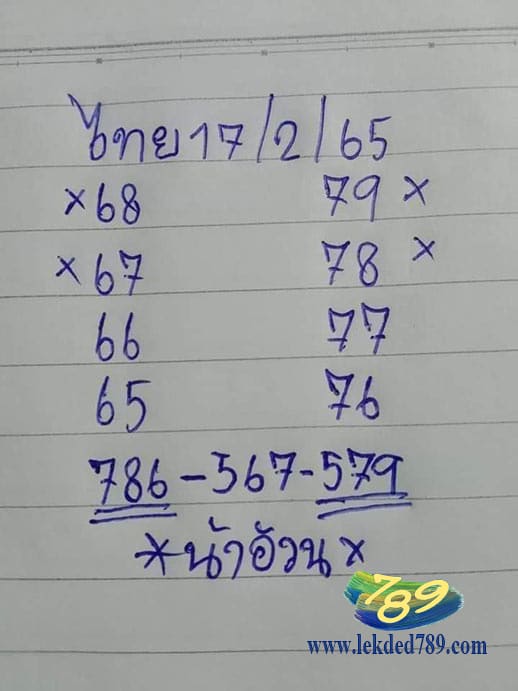 ไทย 17/2/65
×68 79×
×67 78×
66 77
65 76
786-567-579
*น้าอ้วน×
789
www.lekded789.com